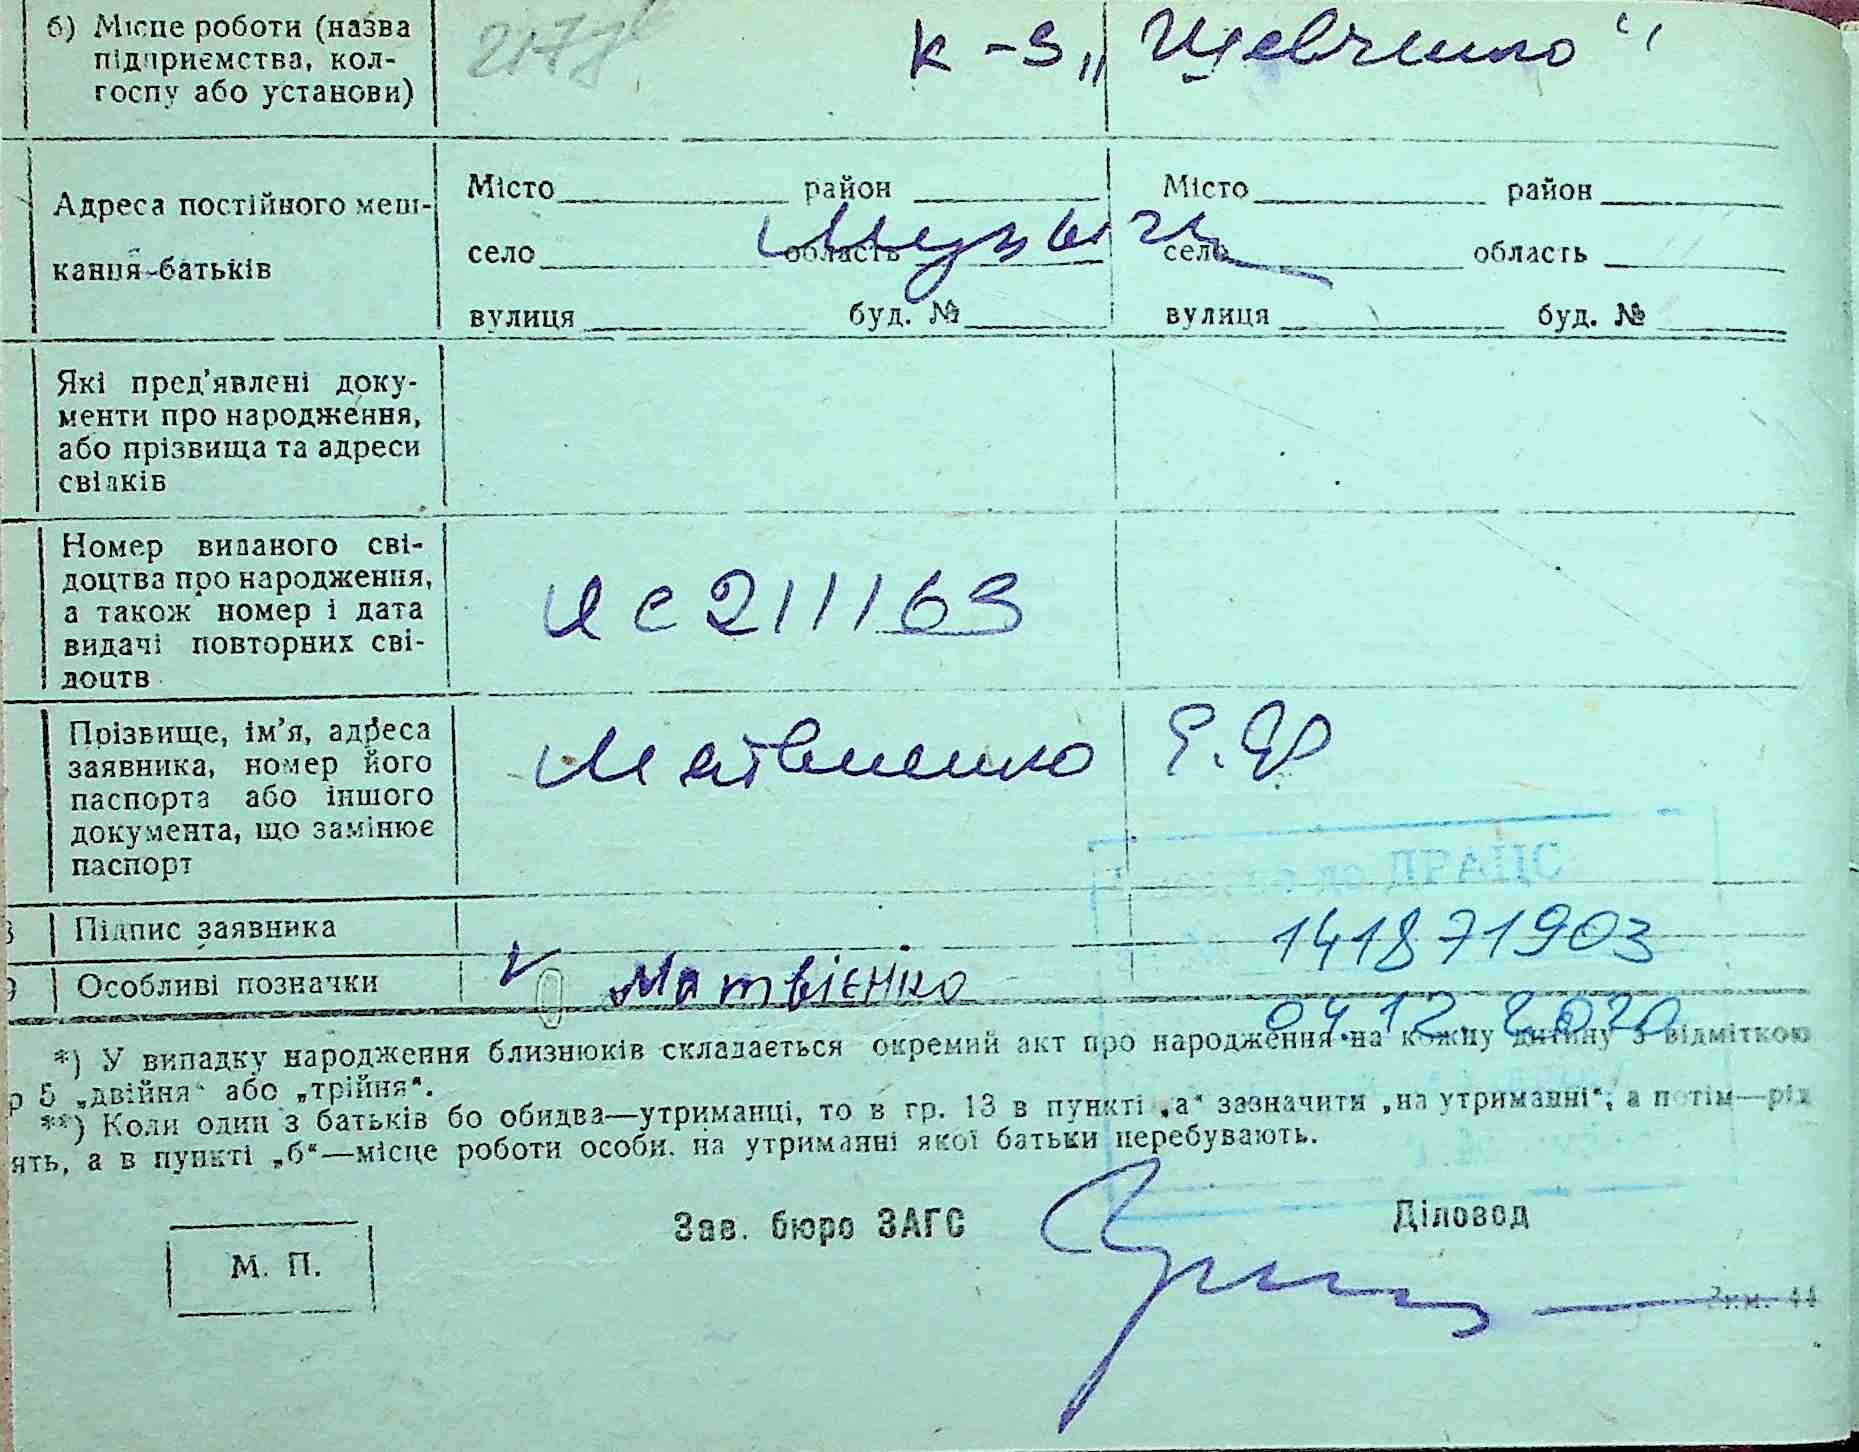 б) Місце роботи (назва
підприємства, кол-
госпу або установи)
к-з „Шевченко“
Адреса постійного меш-
кання батьків
Місто район Місто район
село область село область
Музичі
вулиця буд. № вулиця буд. №
Які пред'явлені доку-
менти про народження,
або прізвища та адреси
свідків
Номер виданого сві-
доцтва про народження,
а також номер і дата
видачі повторних сві-
доцтв
ЯС 211163
Прізвище, ім'я, адреса
заявника, номер його
паспорта або іншого
документа, що замінює
паспорт
Матвиенко Я.Ф
до ДРАЦС
Підпис заявника
141871903
Особливі позначки
Матвієнко
04.12.2020
*) У випадку народження близнюків складається окремий акт про народження на кожну дитину з відміткою
р 5 „двійня“ або „трійня“.
**) Коли один з батьків бо обидва—утриманці, то в гр. 13 в пункті „а“ зазначити „на утриманні“, а потім—рід
ять, а в пункті „б“—місце роботи особи, на утриманні якої батьки перебувають.
Зав. бюро ЗАГС Діловод
М. П.